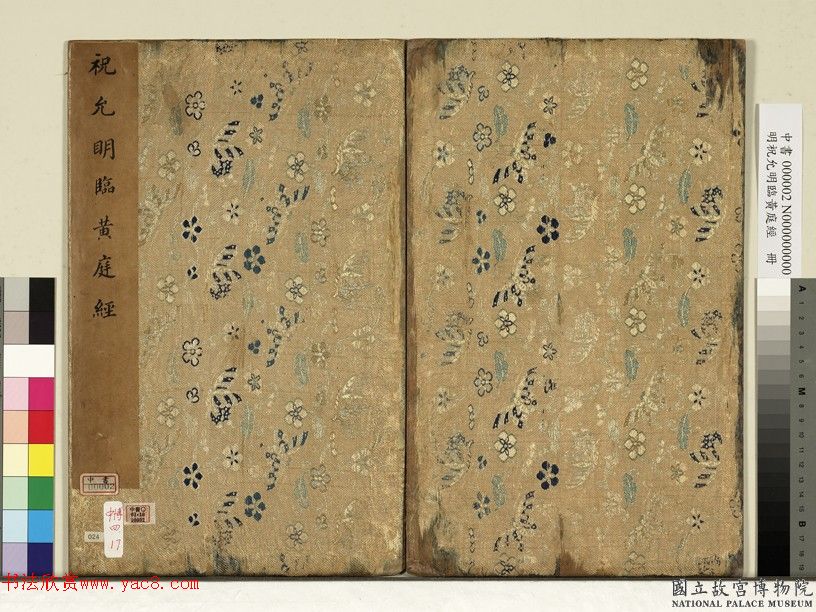 祝允明臨黃庭經
中書
00002
024
中博
四
17
中書 000002 N000000000
明祝允明臨黃庭經 冊
A 1 2 3 4 5 6 M 8 9 10 11 12 13 14 15 B 17 18 19
书法欣赏www.yac8.com
國立故宮博物院
NATIONAL PALACE MUSEUM